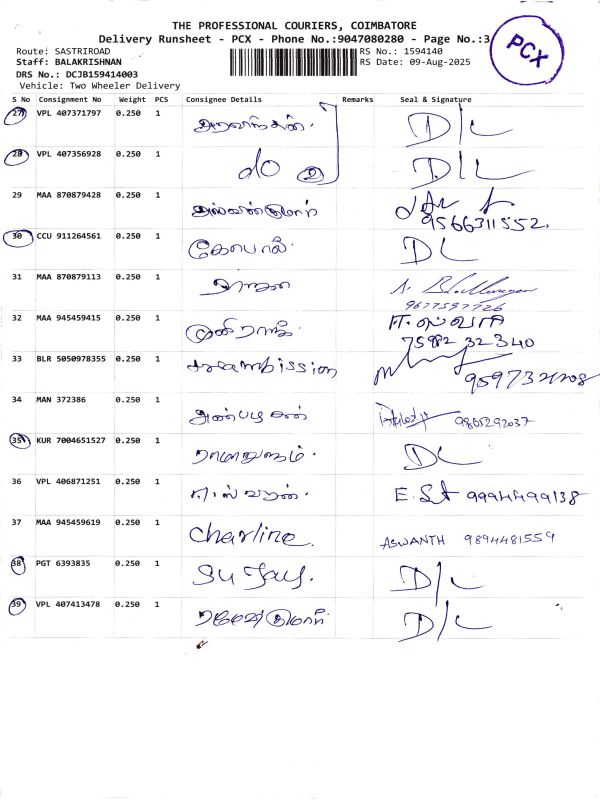 THE PROFESSIONAL COURIERS, COIMBATORE
Delivery Runsheet - PCX - Phone No.:9047080280 - Page No.:3
PCX
Route: SASTRIROAD RS No.: 1594140
Staff: BALAKRISHNAN RS Date: 09-Aug-2025
DRS No.: DCJB159414003
Vehicle: Two Wheeler Delivery
S No Consignment No Weight PCS Consignee Details Remarks Seal & Signature
27 VPL 407371797 0.250 1 அரவிந்தன். D/L
28 VPL 407356928 0.250 1 do ② D/L
29 MAA 870879428 0.250 1
9566311552.
30 CCU 911264561 0.250 1 கோபால் DL
31 MAA 870879113 0.250 1
9677597726
32 MAA 945459415 0.250 1 முனிராஜ்
75982 32340
33 BLR 5050978355 0.250 1
34 MAN 372386 0.250 1 அன்பழகன் 9865292037
35 KUR 7004651527 0.250 1 DL
36 VPL 406871251 0.250 1 ஈஸ்வரன். 9994499138
37 MAA 945459619 0.250 1 Charline. ASWANTH 9894481559
38 PGT 6393835 0.250 1 Sujay. D/L
39 VPL 407413478 0.250 1 D/L